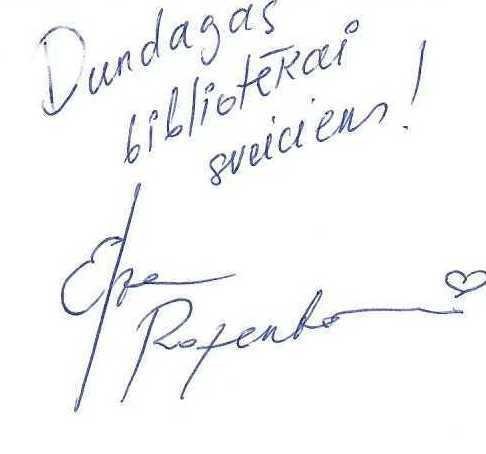 Dundagas
bibliotēkai
sveiciens!
Rozenberga